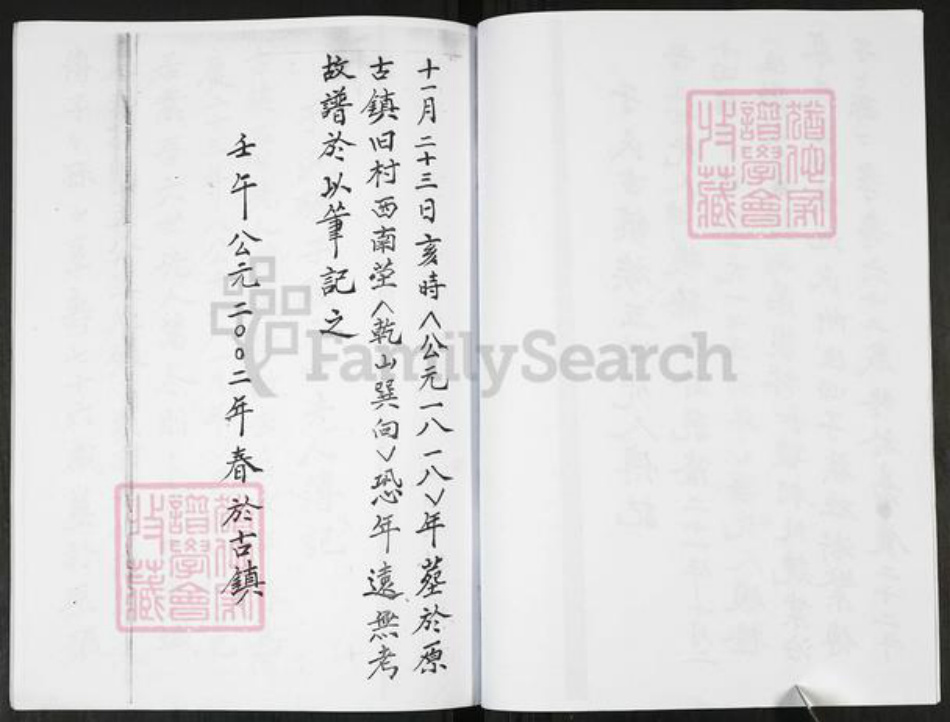 十一月二十三日亥時〈公元一八一八〉年塟於原
古鎮旧村西南塋〈乾山巽向〉恐年遠無考
故譜於以筆記之
壬午 公元二〇〇二年春於古鎮
譜學會
收藏
FamilySearch